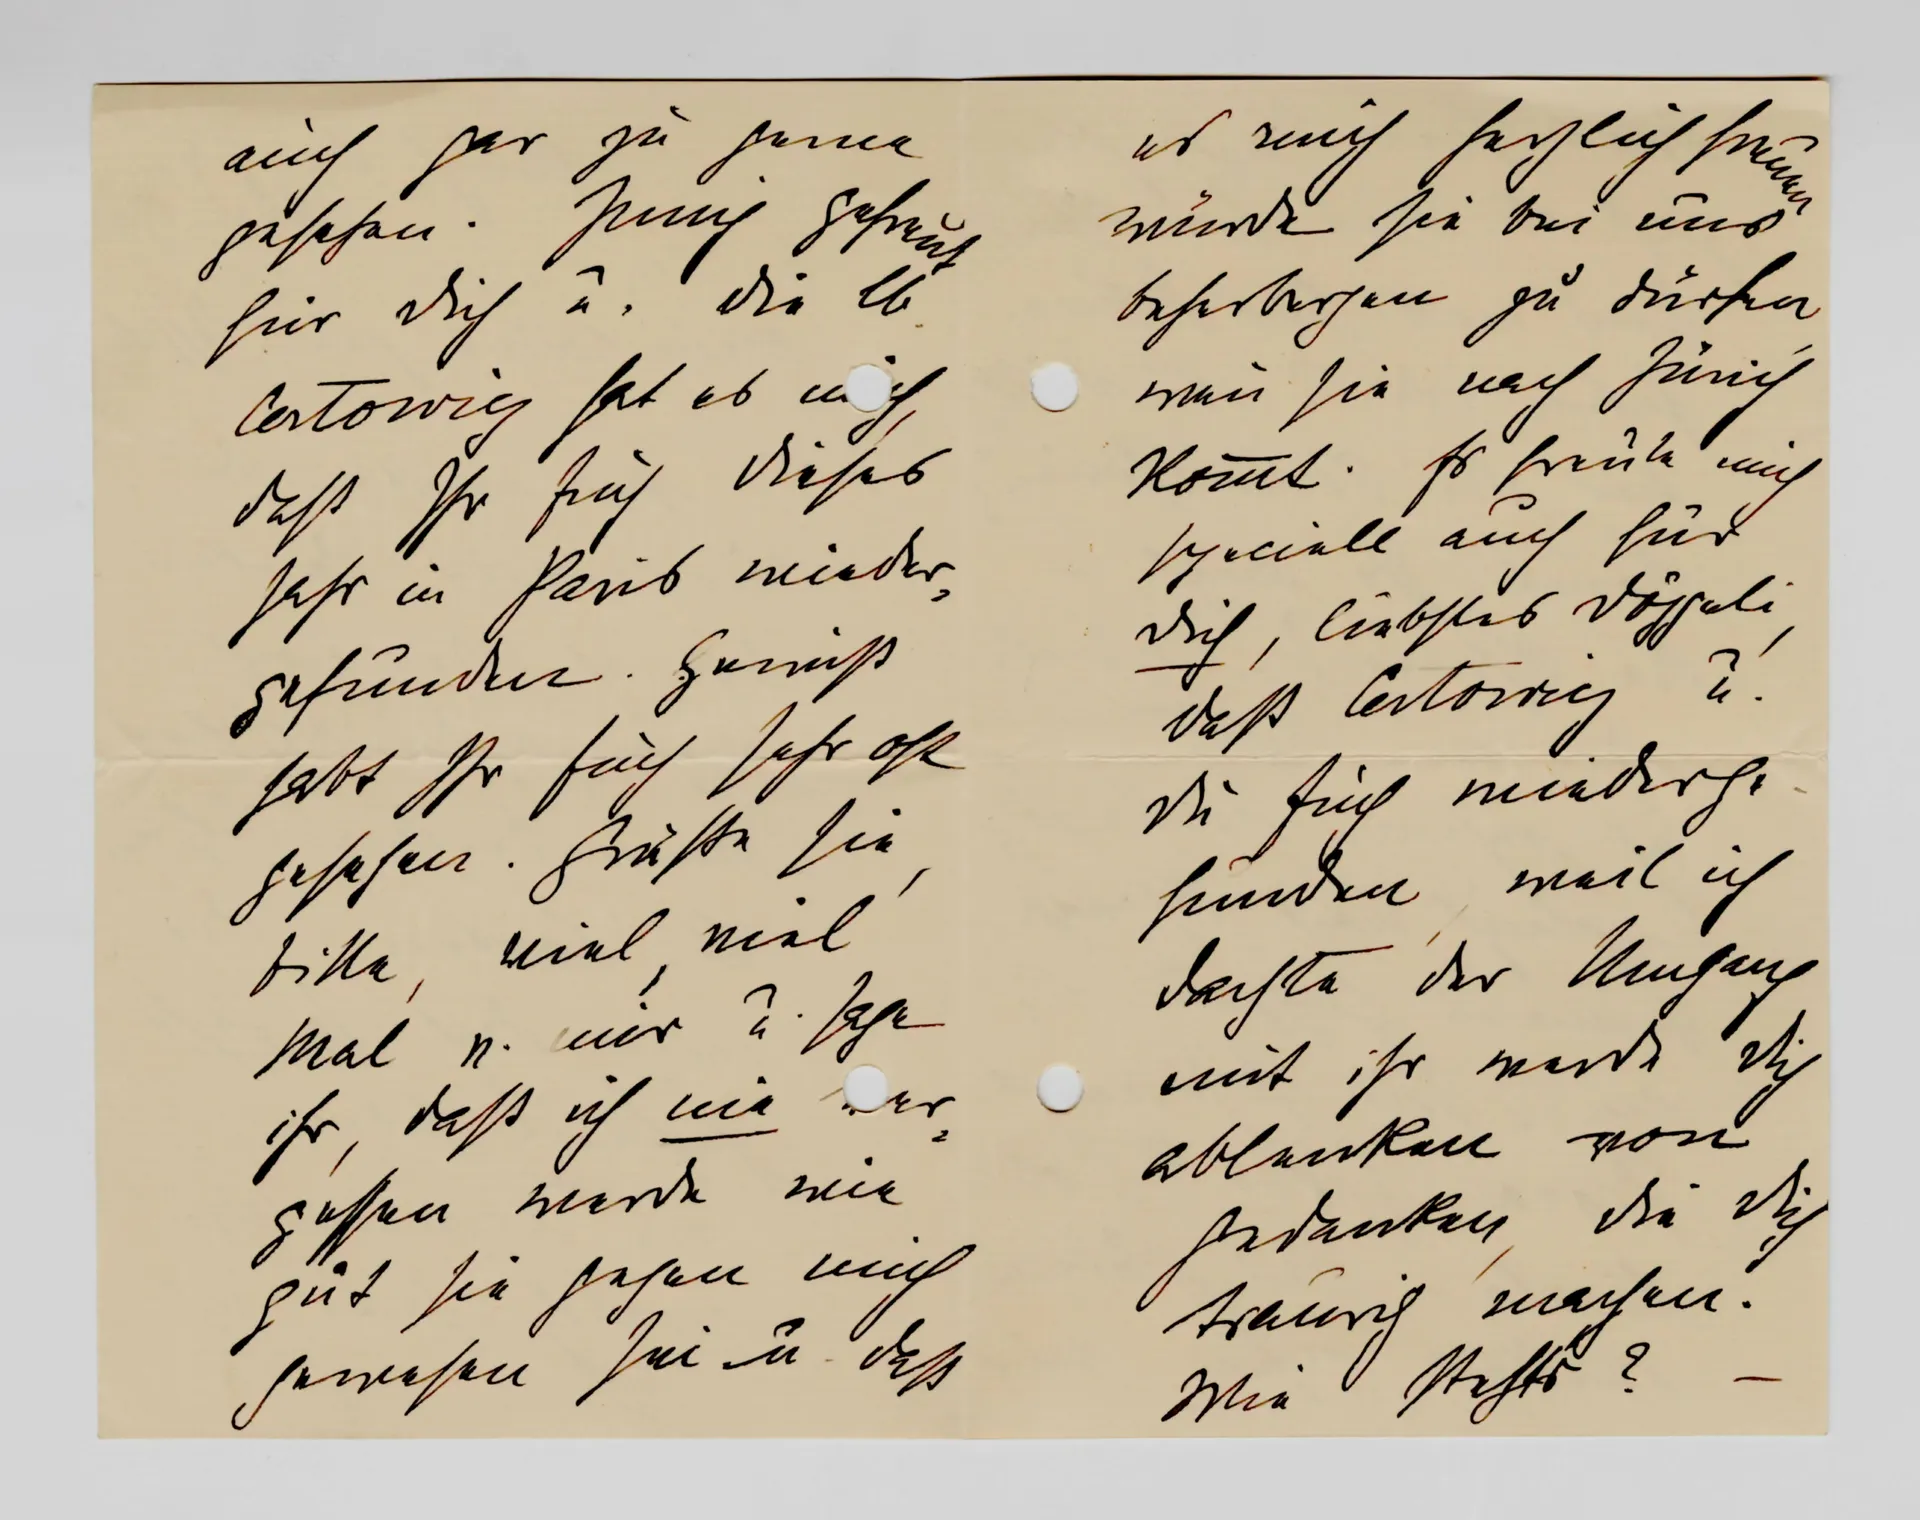 auch gar zu gerne
gesehen. Innig gefreut
für Dich u. die lb.
Certowicz hat es mich,
daß Ihr Euch dieses
Jahr in Paris wieder-
gefunden. Gewiß
habt Ihr Euch sehr oft
gesehen. Grüße sie,
bitte, viel, viel
Mal v. mir u. sage
ihr, daß ich nie ver-
gessen werde wie
gut sie gegen mich
gewesen sei u. daß
es mich herzlich freuen
würde sie bei uns
beherbergen zu dürfen,
wen̄ sie nach Zürich
kom̄t. Es freute mich
speciell auch für
Dich, liebstes Döggeli,
daß Certowicz u.
Du Euch wiederge-
funden, weil ich
dachte der Umgang
mit ihr werde Dich
ablenken von
Gedanken, die Dich
traurig machen.
Wie steht's? –